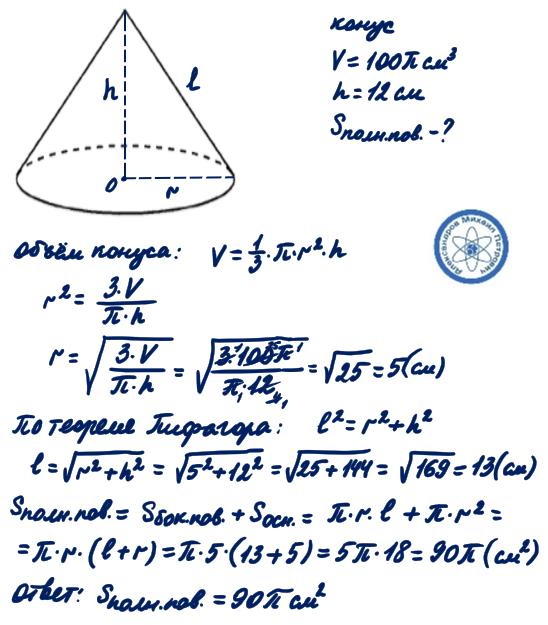 конус
V = 100π см³
h = 12 см
Sполн.пов. - ?
h
l
O
r
Александров Михаил Петрович
Объём конуса: V = 1/3 · π · r² · h
r² = 3·V / π·h
r = √(3·V / π·h) = √(3·100π / π·12) = √25 = 5 (см)
По теореме Пифагора: l² = r² + h²
l = √(r² + h²) = √(5² + 12²) = √(25 + 144) = √169 = 13 (см)
Sполн.пов. = Sбок.пов. + Sосн. = π · r · l + π · r² =
= π · r · (l + r) = π · 5 · (13 + 5) = 5π · 18 = 90π (см²)
Ответ: Sполн.пов. = 90π см²